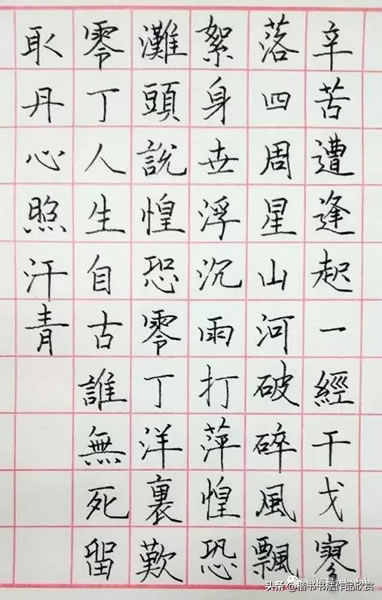 辛苦遭逢起一經干戈寥
落四周星山河破碎風飄
絮身世浮沉雨打萍惶恐
灘頭說惶恐零丁洋裏歎
零丁人生自古誰無死留
取丹心照汗青
头条 @楷书书法作品欣赏